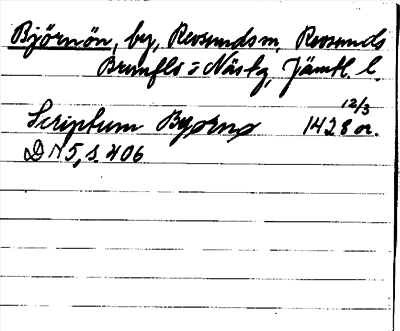 Björnön, by, Revsunds sn, Revsunds
Brunflo o Näs tg, Jämtl. l.
12/3
Scriptum Byørnø 1428 or.
DN 5, s 406